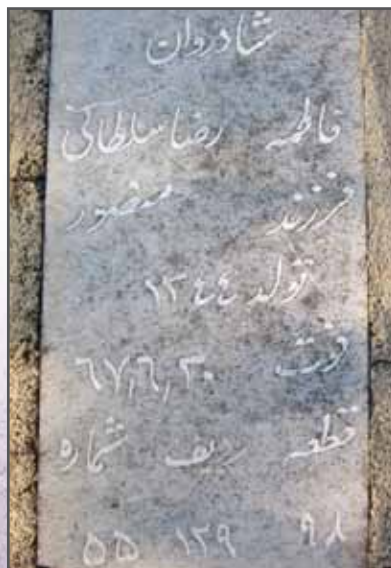 شادروان
فاطمه رضا سلطانی
فرزند منصور
تولد ۱۳٤٤
فوت ٦٧٫٦٫۳۰
قطعه ردیف شماره
۹۸ ۱۲۹ ۵۵